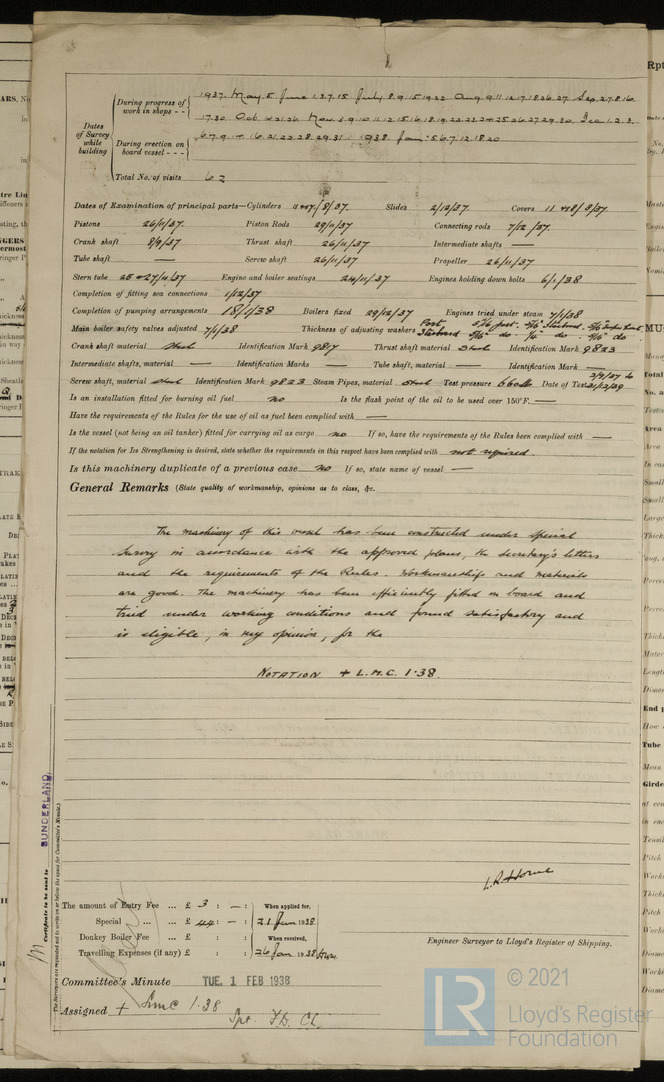 During progress of work in shops - - 1937. May. 5 June 1.3.7.15 July 8.9.15.19.22 Aug. 9.11.12.17.18.26.27. Sep. 2.7.8.16
17.30. Oct. 14.21.26 Nov. 3.9.10.11.12.15.16.18.19.22.23.24.25.26.27.29.30. Dec. 1.2.3.
Dates of Survey while building
During erection on board vessel - - - 6.7.9.14.16.21.22.28.29.31. 1938. Jan: 5.6.7.12.18.20
Total No. of visits 62
Dates of Examination of principal parts—Cylinders /8/37. Slides 2/12/37. Covers /8/37.
Pistons 26/11/37. Piston Rods 29/11/37. Connecting rods 7/12/37.
Crank shaft 8/9/37 Thrust shaft 26/11/37 Intermediate shafts —
Tube shaft — Screw shaft 26/11/37. Propeller 26/11/37.
Stern tube 25 & 27/11/37 Engine and boiler seatings 24/11/37. Engines holding down bolts 6/1/38
Completion of fitting sea connections 1/12/37
Completion of pumping arrangements 18/1/38 Boilers fixed 29/12/37 Engines tried under steam 7/1/38
Main boiler safety valves adjusted 7/1/38 Thickness of adjusting washers Port
Crank shaft material Steel Identification Mark 9817 Thrust shaft material Steel Identification Mark 9823
Intermediate shafts, material — Identification Marks — Tube shaft, material — Identification Mark —
Screw shaft, material Steel Identification Mark 9823 Steam Pipes, material Steel Test pressure 660 lb Date of Test
Is an installation fitted for burning oil fuel no Is the flash point of the oil to be used over 150°F. —
Have the requirements of the Rules for the use of oil as fuel been complied with —
Is the vessel (not being an oil tanker) fitted for carrying oil as cargo no If so, have the requirements of the Rules been complied with —
If the notation for Ice Strengthening is desired, state whether the requirements in this respect have been complied with not required.
Is this machinery duplicate of a previous case no If so, state name of vessel —
General Remarks (State quality of workmanship, opinions as to class, &c.
The machinery of this vessel has been constructed under special
survey in accordance with the approved plans, the secretary's letters
and the requirements of the Rules. Workmanship and materials
are good. The machinery has been efficiently fitted on board and
tried under working conditions and found satisfactory and
is eligible, in my opinion, for the
NOTATION + L.M.C. 1·38.
SUNDERLAND
Certificate to be sent to
(The Surveyors are requested not to write on or below the space for Committee's Minute.)
L.R. Horne
The amount of Entry Fee ... £ 3 : — : When applied for,
Special ... ... £ 44 : — : 21 Jan 1938
Donkey Boiler Fee ... £ : : When received,
Travelling Expenses (if any) £ : : 26 Jan 1938
Engineer Surveyor to Lloyd's Register of Shipping.
Committee's Minute TUE. 1 FEB 1938
Assigned + LMC 1·38
Spt. F.D. CL.
LR © 2021
Lloyd's Register
Foundation